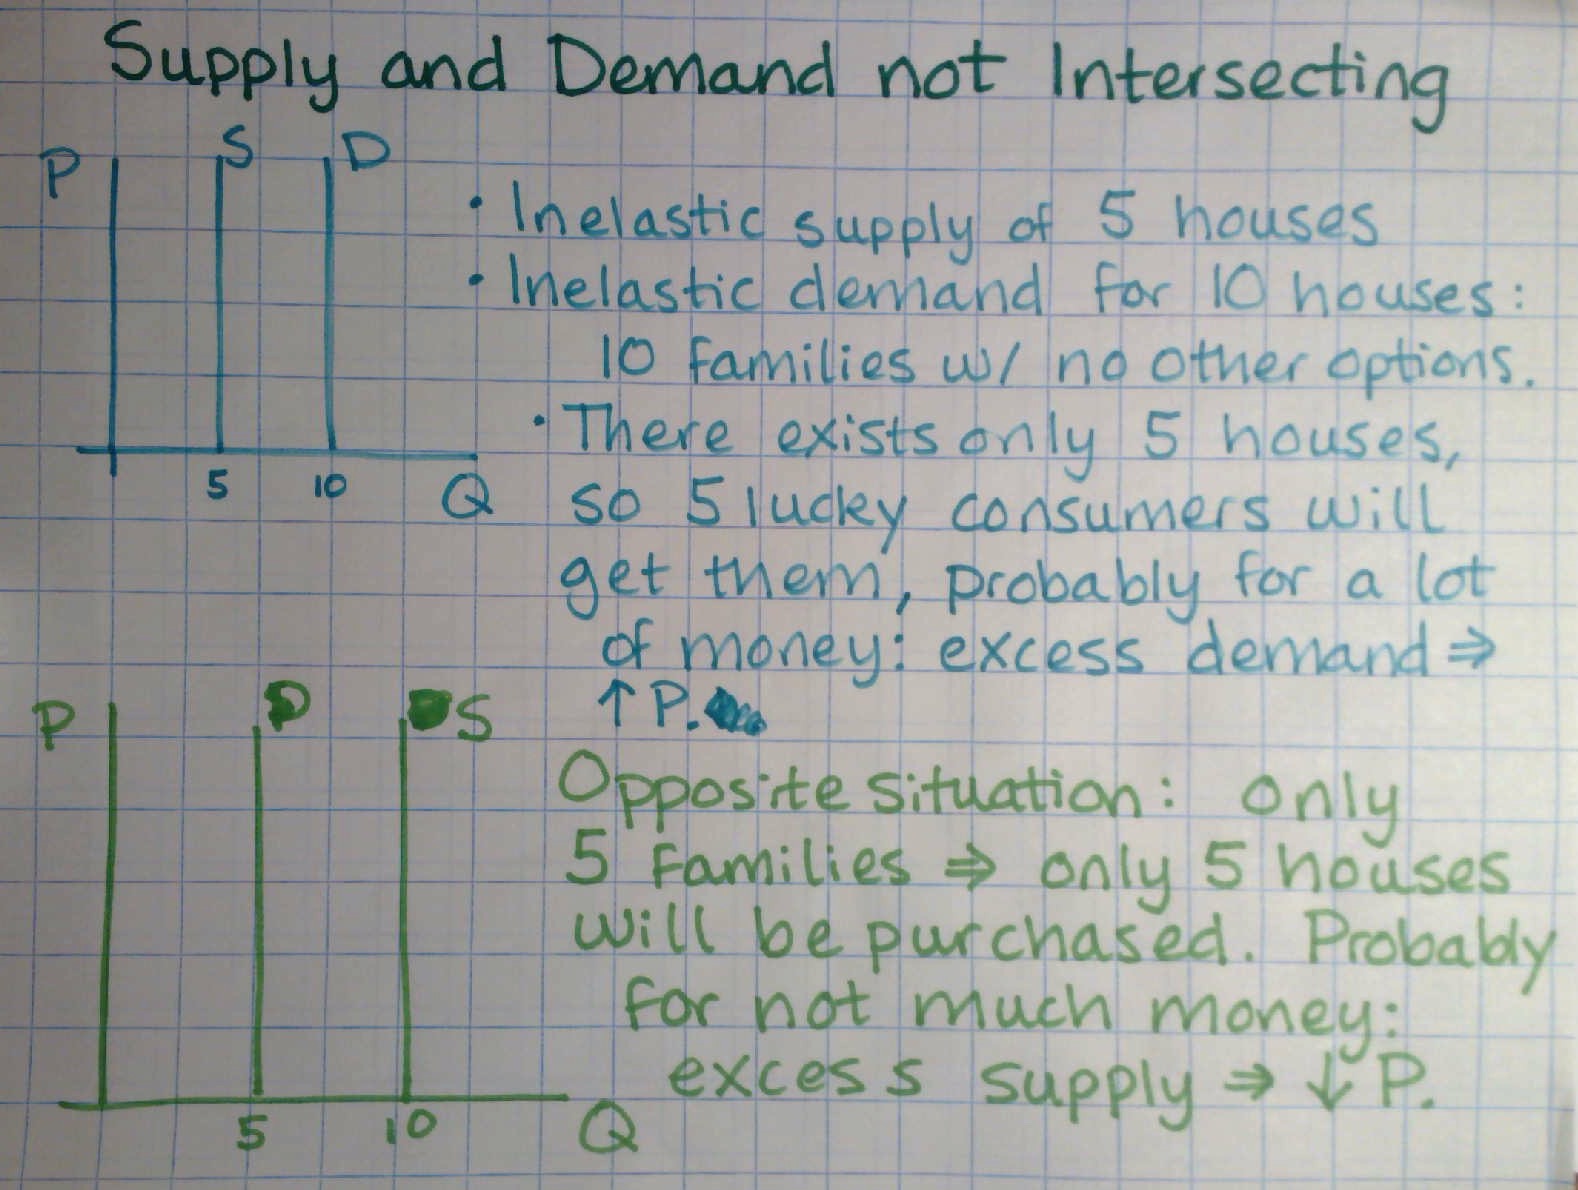 Supply and Demand not Intersecting
P S D
• Inelastic supply of 5 houses
• Inelastic demand for 10 houses:
10 families w/ no other options.
• There exists only 5 houses,
5 10 Q
so 5 lucky consumers will
get them, probably for a lot
of money: excess demand ⇒
↑ P.
P D S
Opposite situation: only
5 families ⇒ only 5 houses
will be purchased. Probably
for not much money:
excess supply ⇒ ↓ P.
5 10 Q